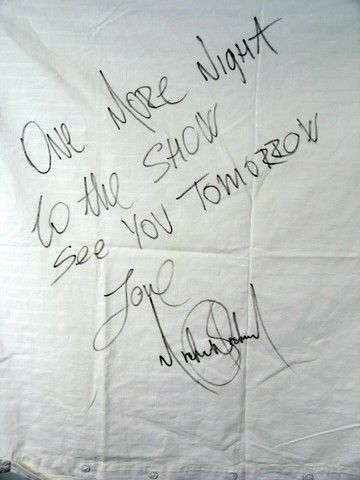 One More Night
to the SHOW
See You Tomorrow
Love
Michael Jackson